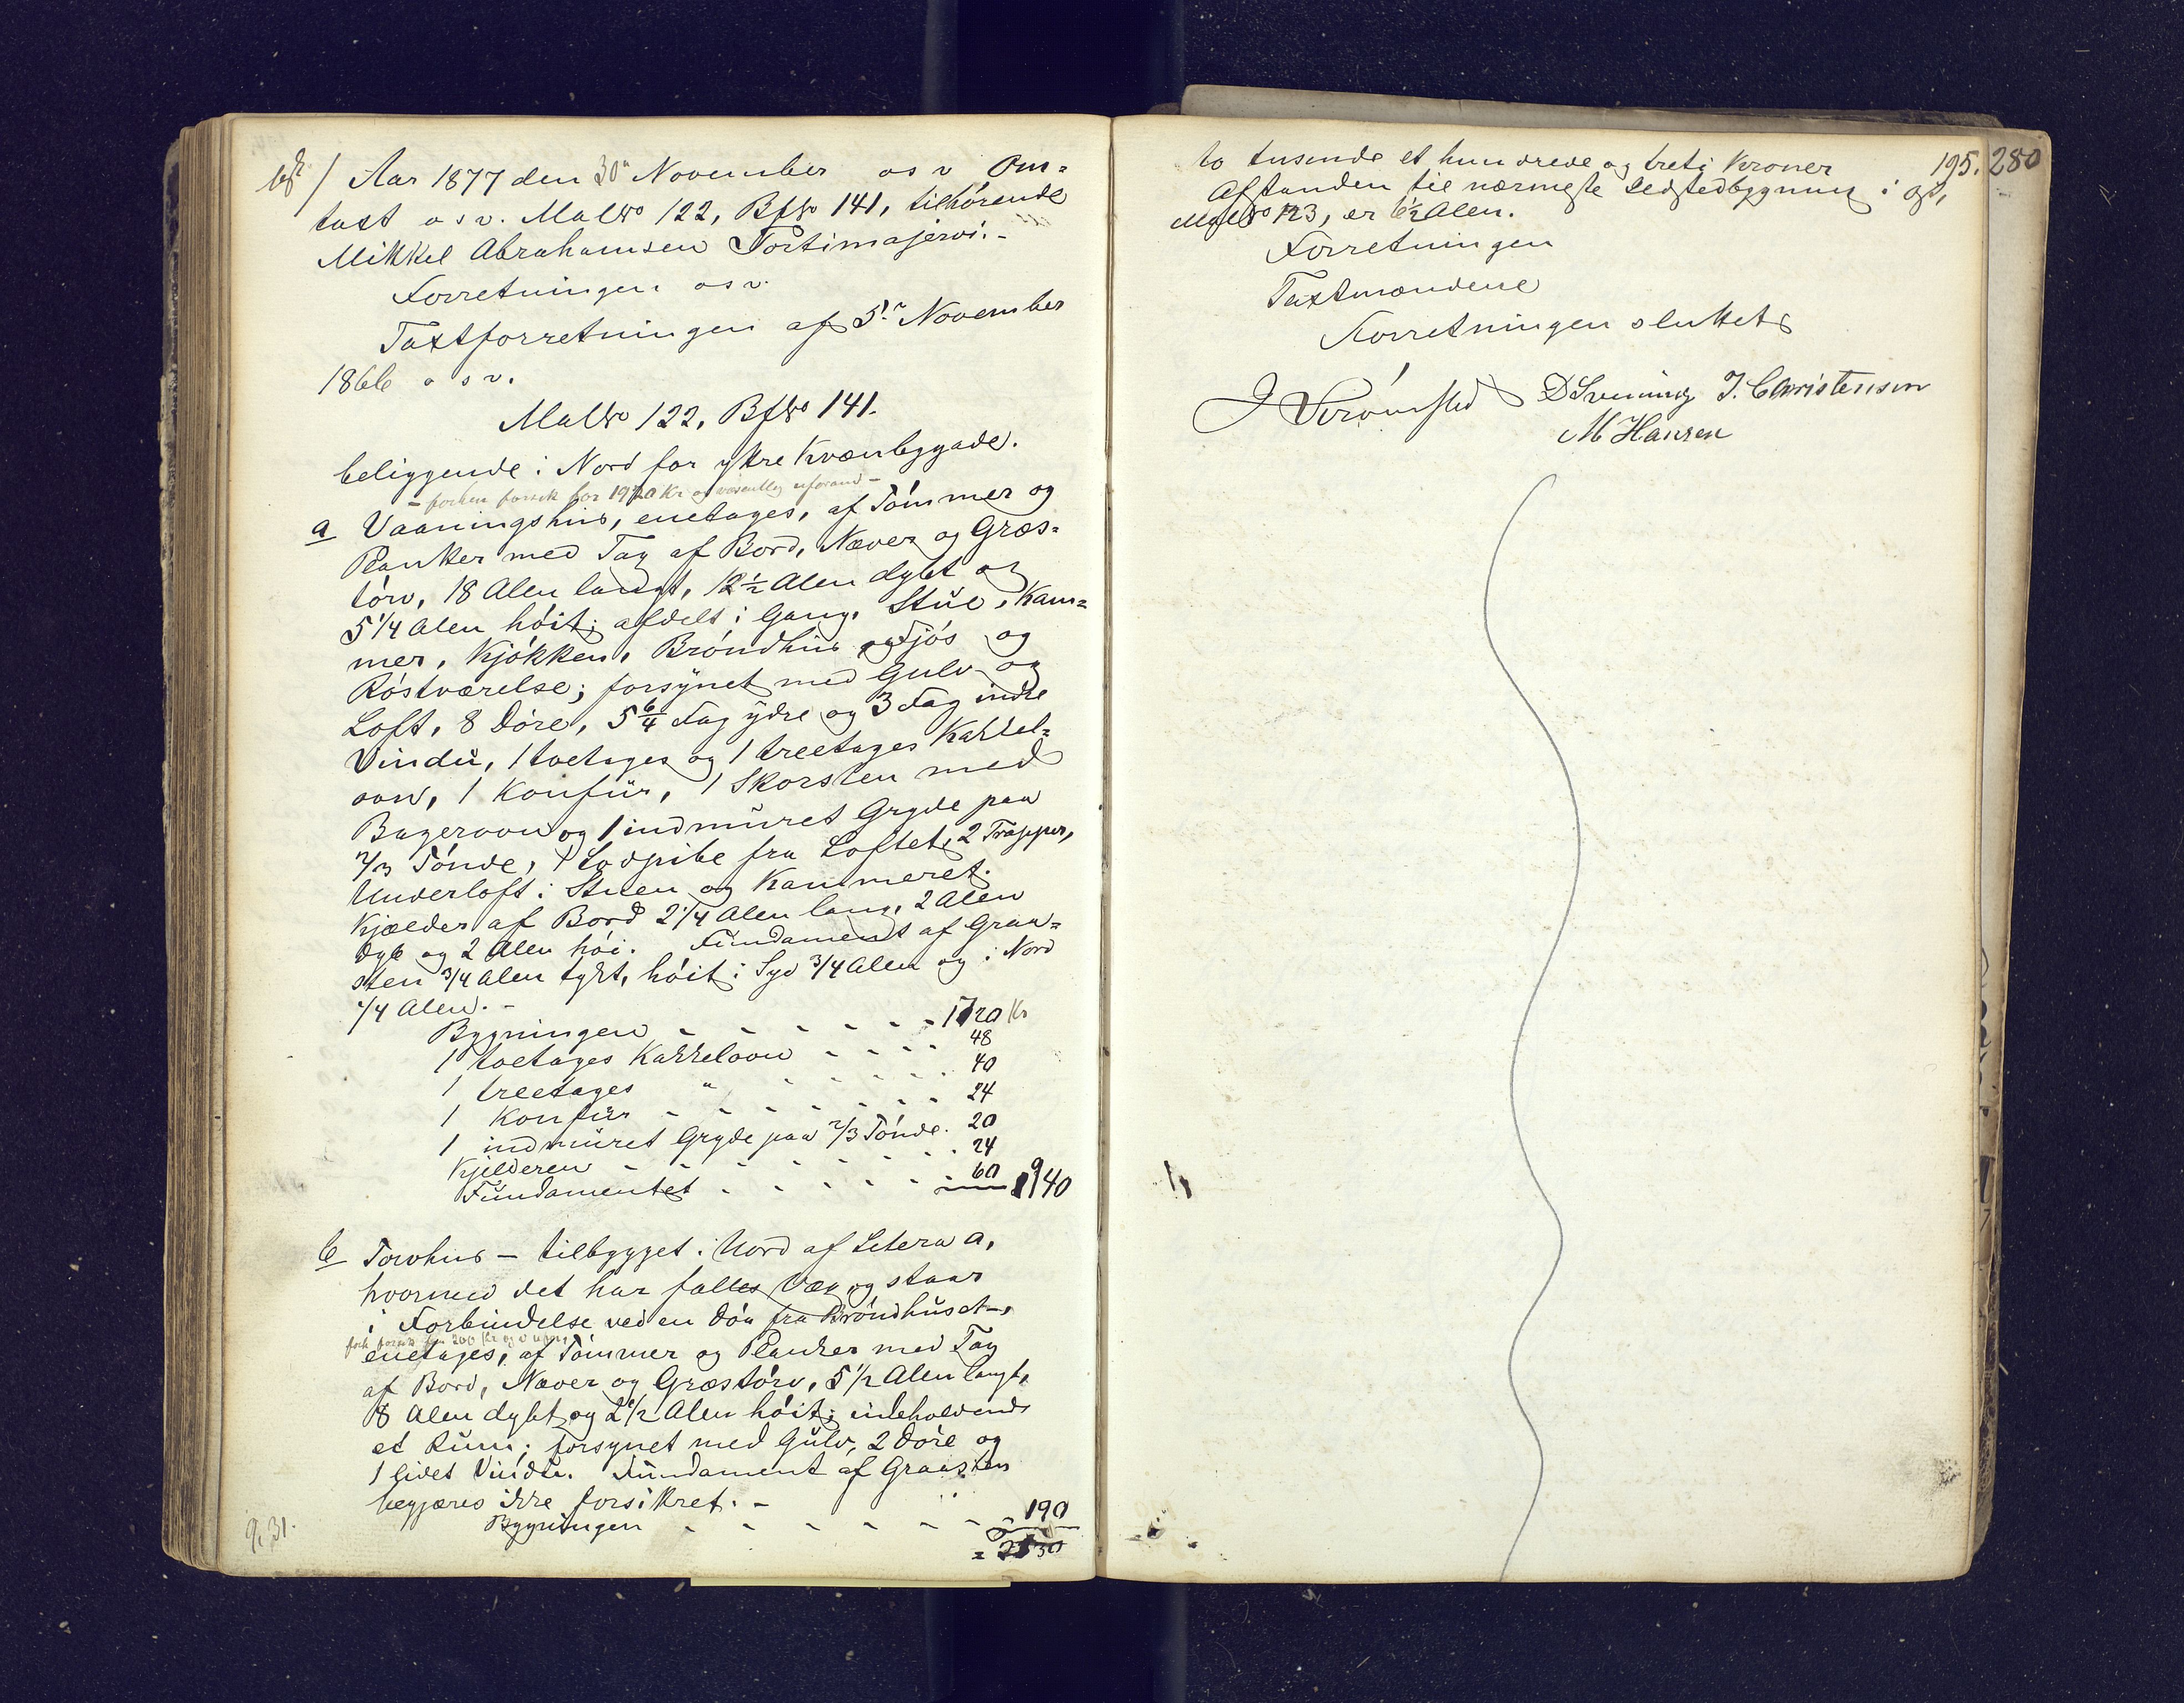 Aar 1877 den 30. November osv Om=
taxt osv. Mat№ 122, Bf№ 141, tilhørende
Mikkel Abrahamsen Portimajervi.-
Forretningen osv.
Taxtforretningen af 5. November
1866 osv.
Mat№ 122, Bf№ 141.
beliggende i Nord for ytre Kvænbygade.
a Vaaningshus, enetages, af Tømmer og
Planker med Tag af Bord, Næver og Græs=
tørv, 18 Alen langt, 12½ Alen dybt og
5 1/4 Alen høit; afdelt i Gang, Stue, Kam=
mer, Kjøkken, Brøndhus og Fjøs og
Røstværelse; forsynet med Gulv og
Loft, 8 Døre, 5 6/4 Fag ydre og 3 Fag indre
Vindu, 1 toetages og 1 treetages Kakkel=
ovn, 1 Konfur, 1 Skorsten med
Bagerovn og 1 indmuret Gryde paa
2/3 Tønde, 1 Lodpibe fra Loftet, 2 Trapper,
Underloft i Stuen og Kammeret.
Kjælder af Bord 2 1/4 Alen lang, 2 Alen
dyb og 2 Alen høi. Fundament af Graa=
sten 3/4 Alen tykt, høit i Syd 3/4 Alen og i Nord
/4 Alen.-
Bygningen - - - - - - 1720 Kr
1 toetages Kakkelovn - - - - 48
1 treetages " - - - - - 40
1 Konfur - - - - - - - 24
1 indmuret Gryde paa 2/3 Tønde. 20
Kjelderen - - - - - - - 24
Fundamentet - - - - - - 60 1940
b Torvhus - tilbygget i Nord af Litera a,
hvormed det har fælles Væg og staar
i Forbindelse ved en Dør fra Brøndhuset-,
enetages, af Tømmer og Planker med Tag
af Bord, Næver og Græstørv, 5 1/2 Alen langt,
8 Alen dybt og 2 1/2 Alen høit; indeholdende
et Rum; forsynet med Gulv, 2 Døre og
1 lidet Vindu. Fundament af Graasten
begjæres ikke forsikret.-
Bygningen - - - - - - - 190
= 2130
9,31.
195. 280
to tusende et hundrede og treti Kroner
Afstanden til nærmeste Ildstedbygning i øst,
Mat№ 123, er 6½ Alen.
Forretningen
Taxtmændene
Forretningen sluttet
J Strømsted D Svenning J. Christensen
M Hansen